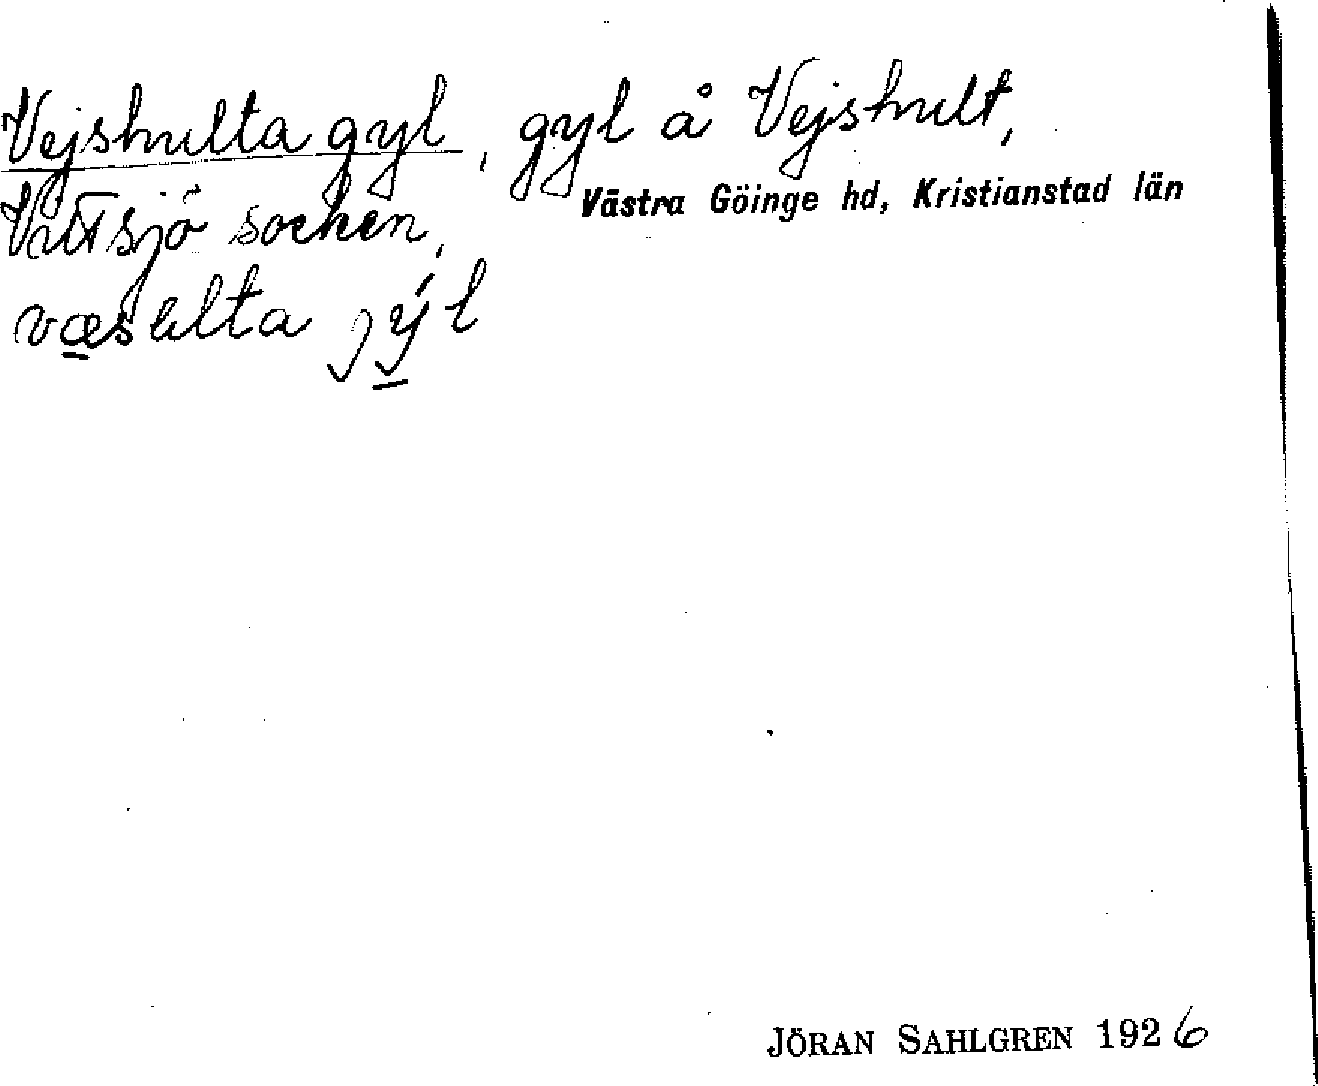 Vejshulta gyl, gyl å Vejshult,
Västra Göinge hd, Kristianstad län
Vittsjö socken,
væsulta jýl
JÖRAN SAHLGREN 1926